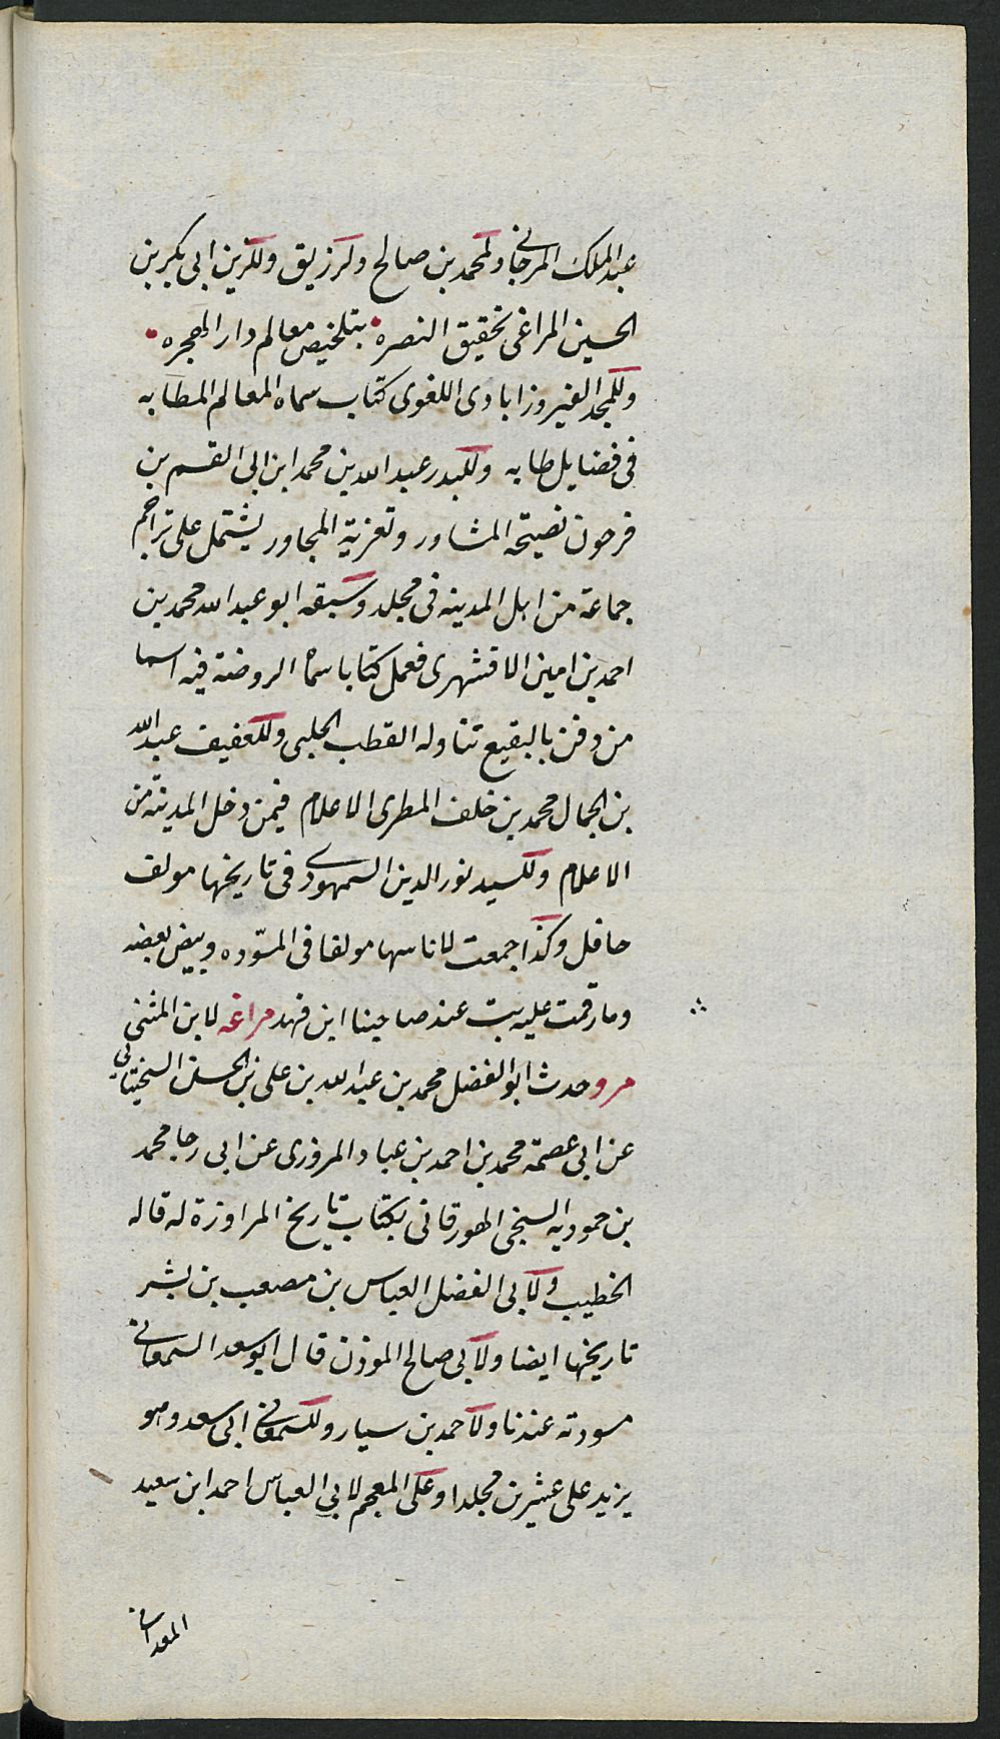 عبد الملك المرجاني ولمحمد بن صالح ولرزيق وللزين ابي بكر بن
الحسين المراغي تحقيق النصره بتلخيص معالم دار الهجره
وللمجد الفيروزابادى اللغوى كتاب سماه المعالم المطابه
فى فضايل طابه وللبدر عبد الله بن محمد ابن ابى القسم بن
فرحون نصيحة المشاور وتعزية المجاور يشتمل على تراجم
جماعة من اهل المدينه فى مجلد وسبقه ابو عبد الله محمد بن
احمد بن امين الاقشهرى فعمل كتابا سماه الروضة فيه اسما
من دفن بالبقيع تناوله القطب الحلبى وللعفيف عبد الله
بن الجمال محمد بن خلف المطرى الاعلام فيمن دخل المدينة من
الاعلام وللسيد نور الدين السمهودى فى تاريخها مولف
حافل وكذا جمعت لاناسها مولفا فى المسوّده وبيض بعضه
وما رقمت عليه بيت عند صاحبنا ابن فهد مراغه لابن المثنى
مرو حدث ابو الفضل محمد بن عبد الله بن على بن الحسن السختيانى
عن ابى عصمة محمد بن احمد بن عباد المروزى عن ابى رجا محمد
بن حمويه السنجى الهورقانى بكتاب تاريخ المراوزة له قاله
الخطيب ولابى الفضل العباس بن مصعب بن بشر
تاريخها ايضا ولابى صالح الموذن قال ابو سعد السمعانى
مسودته عندنا ولاحمد بن سيار وللسمعانى ابى سعد وهو
يزيد على عشرين مجلدا وعلى المعجم لابى العباس احمد ابن سعيد
المعدانى